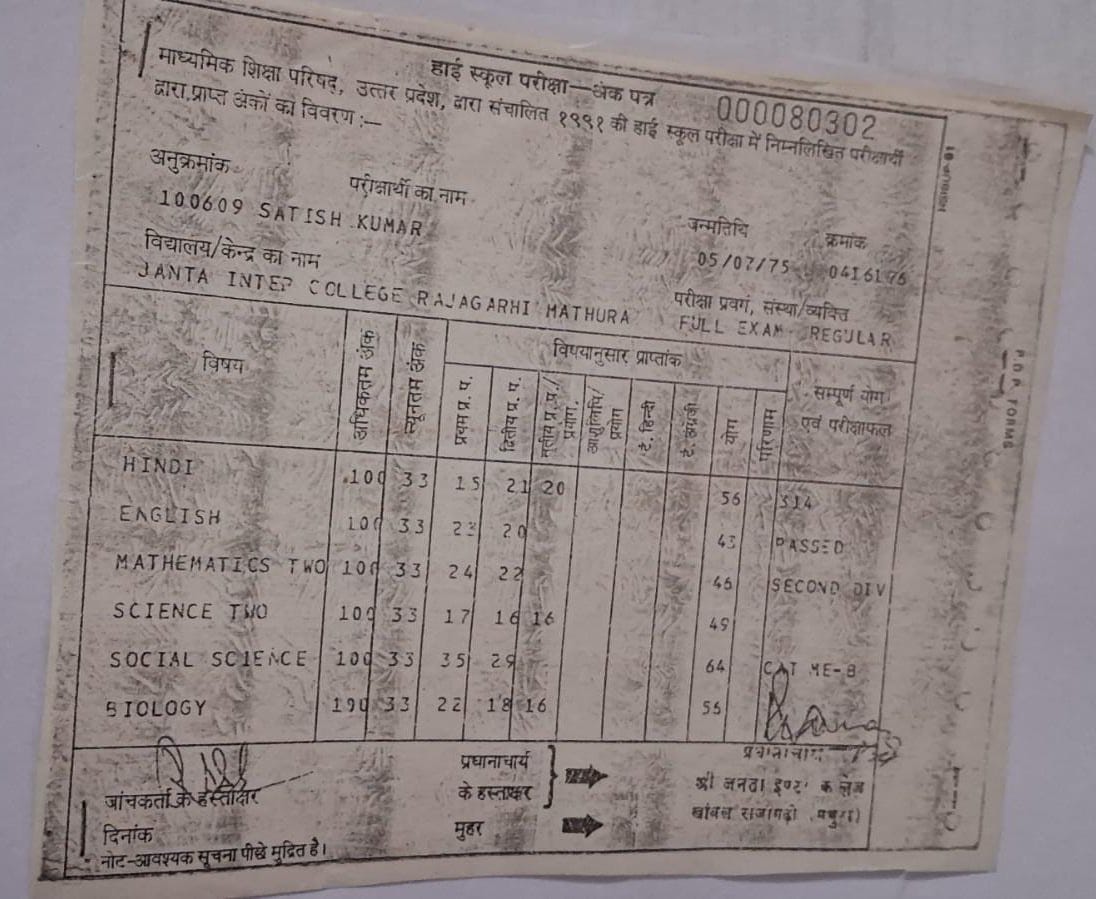 हाई स्कूल परीक्षा—अंक पत्र
000080302
माध्यमिक शिक्षा परिषद्, उत्तर प्रदेश, द्वारा संचालित १९९१ की हाई स्कूल परीक्षा में निम्नलिखित परीक्षार्थी
द्वारा प्राप्त अंकों का विवरण :—
अनुक्रमांक परीक्षार्थी का नाम जन्मतिथि क्रमांक
100609 SATISH KUMAR 05/07/75 0416176
विद्यालय/केन्द्र का नाम परीक्षा प्रवर्ग, संस्था/व्यक्ति
JANTA INTER COLLEGE RAJAGARHI MATHURA FULL EXAM REGULAR
विषय अधिकतम अंक न्यूनतम अंक विषयानुसार प्राप्तांक सम्पूर्ण योग एवं परीक्षाफल
प्रथम प्र. प. द्वितीय प्र. प. तृतीय प्र. प./प्रयोग. आशुलिपि/प्रयोग टं. हिन्दी टं. अंग्रेजी योग परिणाम
HINDI 100 33 15 21 20 56 314
ENGLISH 100 33 23 20 43 PASSED
MATHEMATICS TWO 100 33 24 22 46 SECOND DIV
SCIENCE TWO 100 33 17 16 16 49
SOCIAL SCIENCE 100 33 35 29 64 CAT ME-B
BIOLOGY 100 33 22 18 16 56
जांचकर्ता के हस्ताक्षर प्रधानाचार्य के हस्ताक्षर प्रधानाचार्य
दिनांक मुहर
श्री जनता इण्टर
राजागढ़ी
नोट-आवश्यक सूचना पीछे मुद्रित है।
FORMS